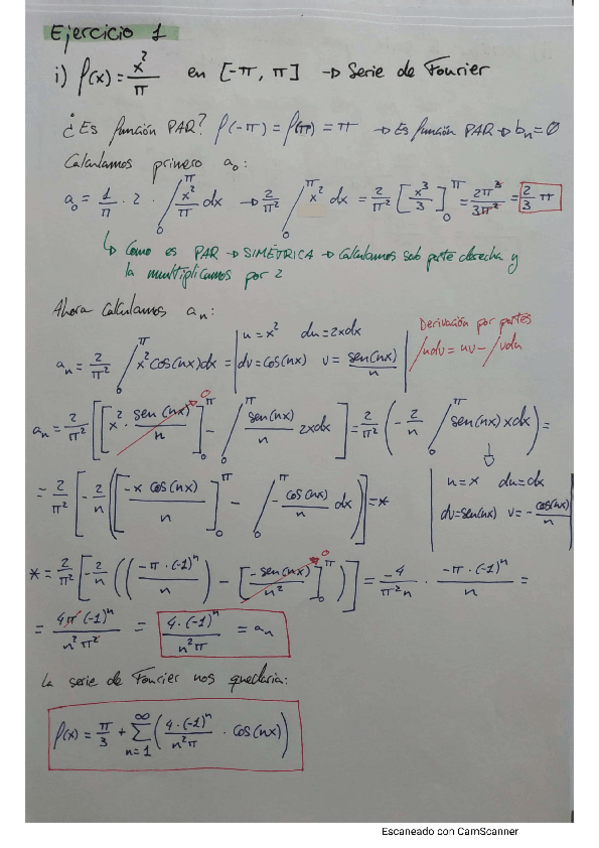 Ejercicio 1
i) f(x) = x²/π en [-π, π] → Serie de Fourier
¿Es función PAR? f(-π) = f(π) = π → Es función PAR → bn = 0
Calculamos primero a₀:
a₀ = 1/π · 2 · ∫₀^π x²/π dx → 2/π² ∫₀^π x² dx = 2/π² [x³/3]₀^π = 2π³/3π² = 2/3 π
↳ Como es PAR → SIMÉTRICA → Calculamos sob parte derecha y
la multiplicamos por 2
Ahora calculamos an:
an = 2/π² ∫₀^π x² cos(nx)dx = | u = x² du = 2xdx
dv = cos(nx) v = sen(nx)/n |
Derivación por partes
∫udv = uv - ∫vdu
an = 2/π² [[x² · sen(nx)/n]₀^π - ∫₀^π sen(nx)/n 2xdx] = 2/π² (-2/n ∫₀^π sen(nx)xdx) =
0
= 2/π² [-2/n ([-x cos(nx)/n]₀^π - ∫₀^π -cos(nx)/n dx)] = *
| u = x du = dx
dv = sen(nx) v = -cos(nx)/n |
* = 2/π² [-2/n ((-π·(-1)ⁿ/n) - [-sen(nx)/n²]₀^π)] = -4/π²n · -π·(-1)ⁿ/n =
0
= 4π·(-1)ⁿ/n²π² = 4·(-1)ⁿ/n²π = an
La serie de Fourier nos quedaría:
f(x) = π/3 + ∑_{n=1}^∞ (4·(-1)ⁿ/n²π · cos(nx))
Escaneado con CamScanner